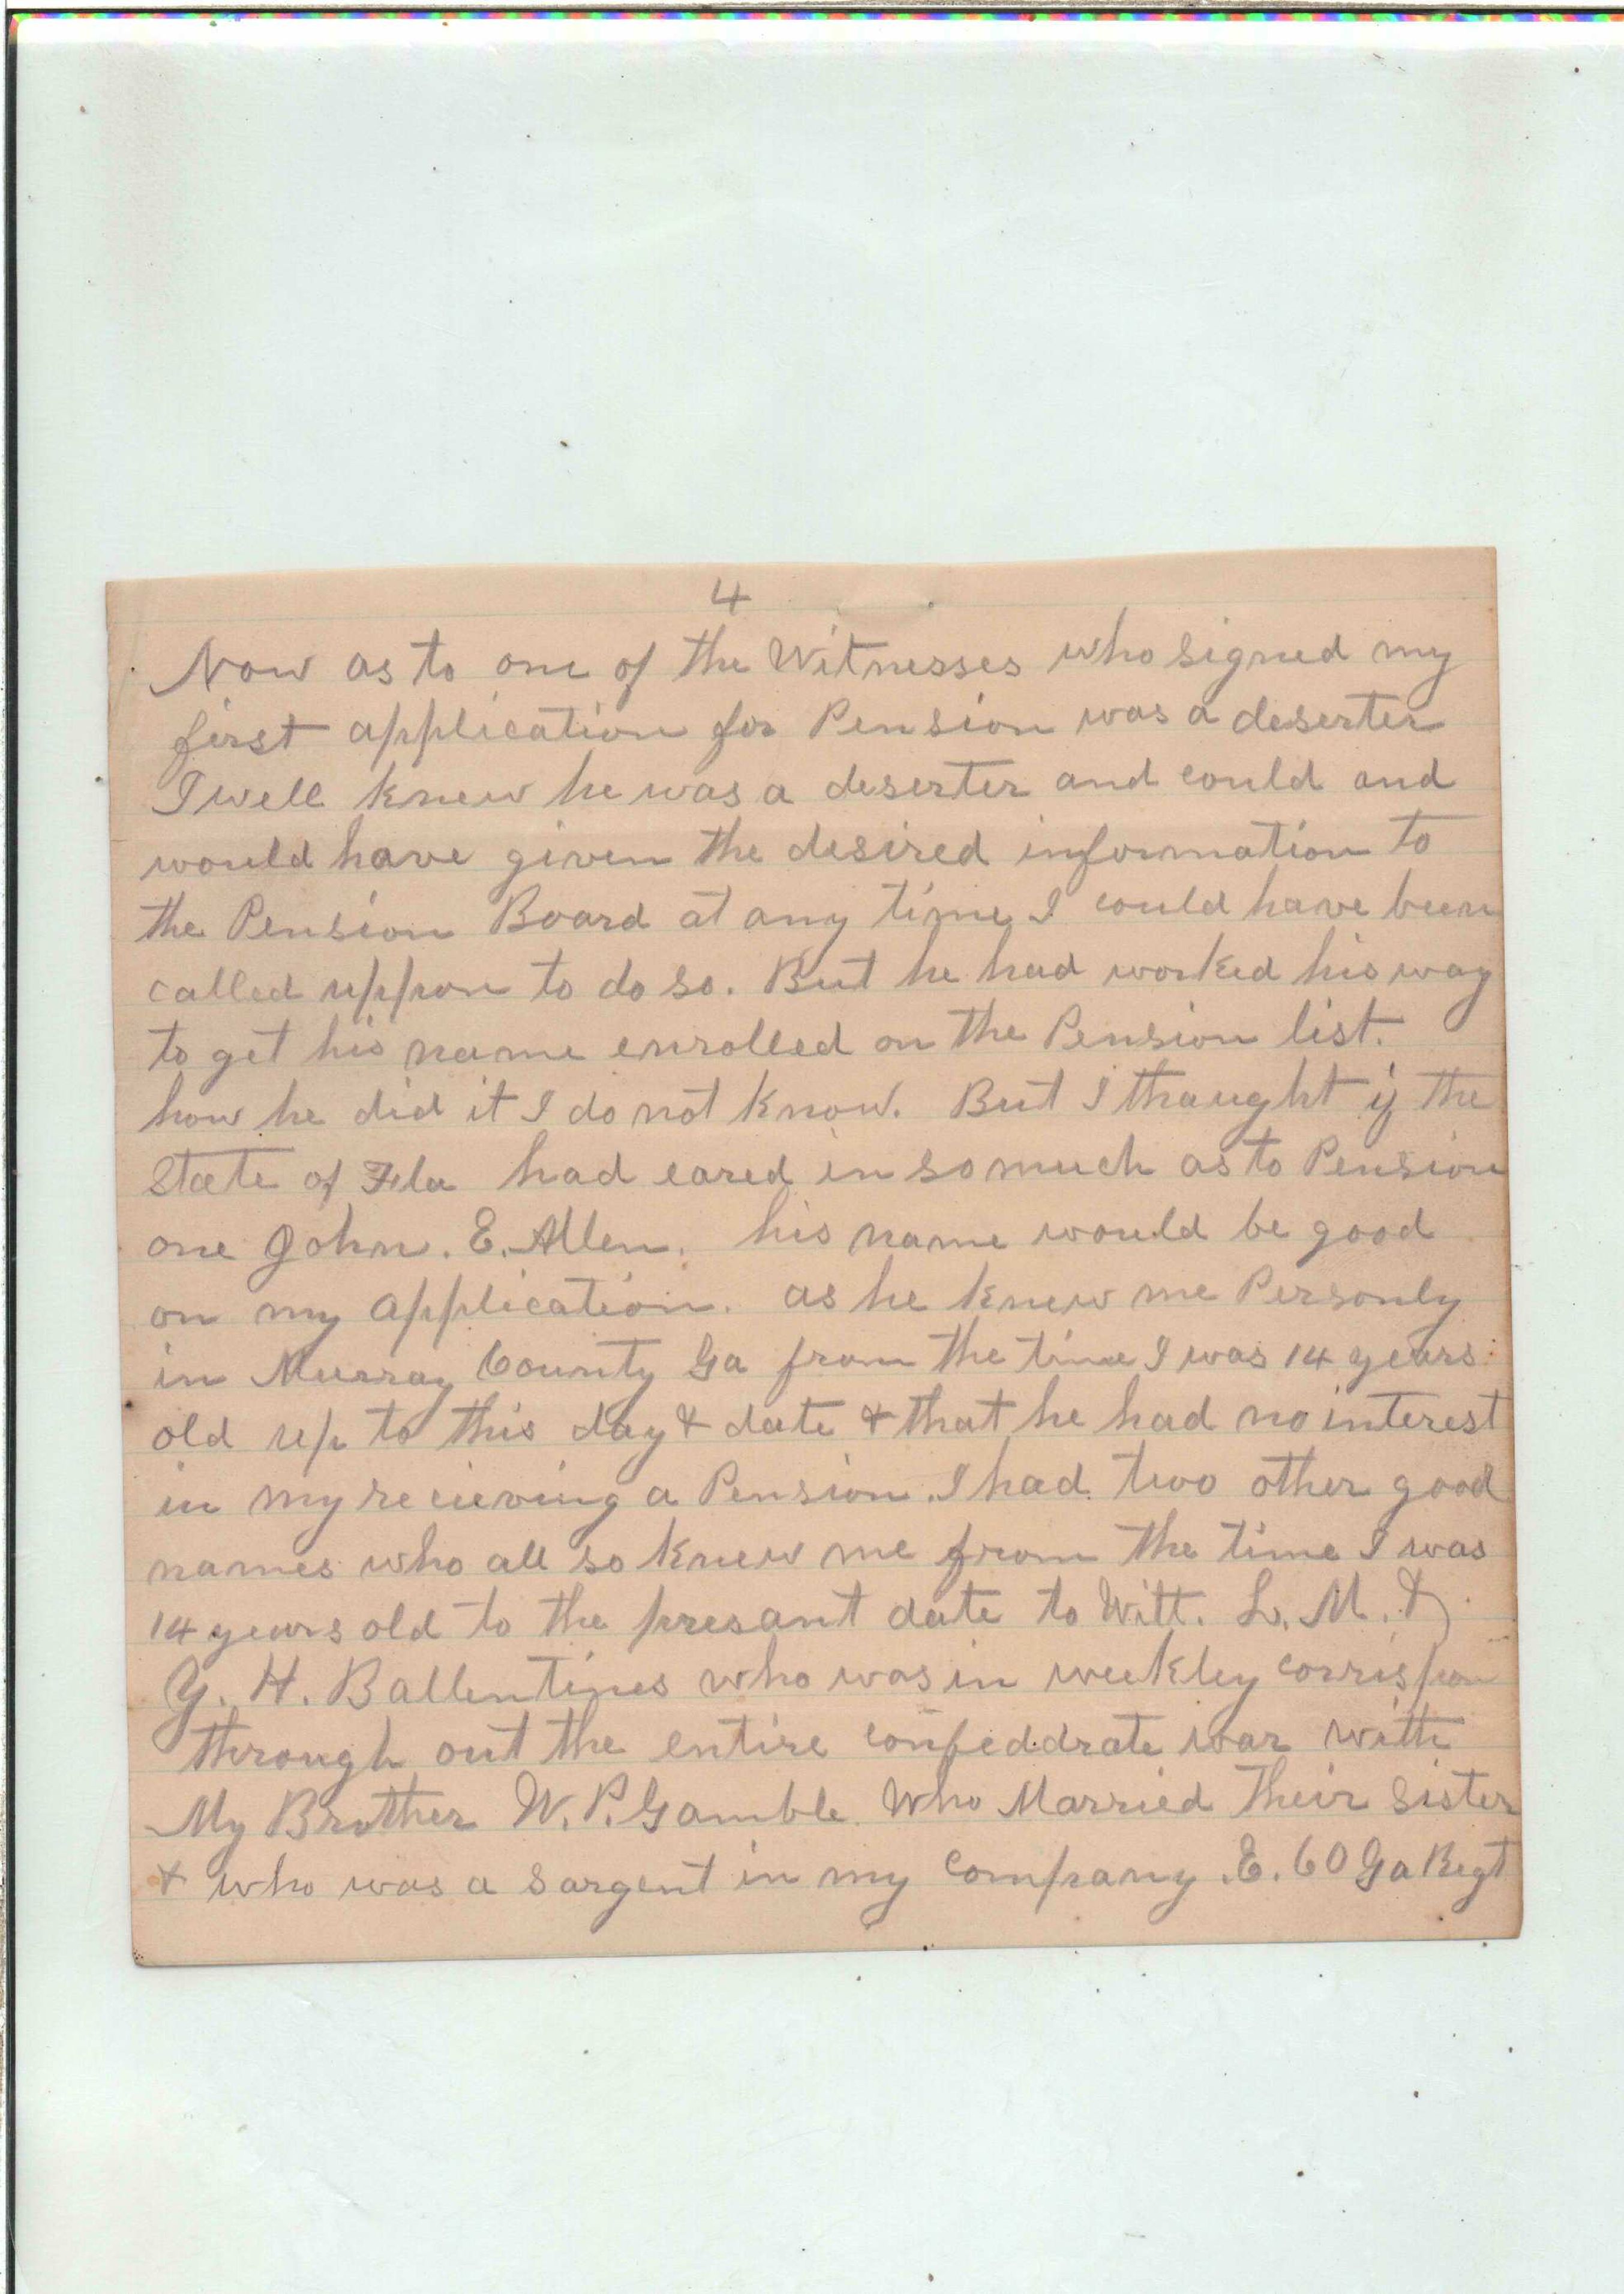 4
Now as to one of the Witnesses who signed my
first application for Pension was a deserter
I well knew he was a deserter and could and
would have given the desired information to
the Pension Board at any time I could have been
called uppon to do so. But he had worked his way
to get his name enrolled on the Pension list.
how he did it I do not know. But I thaught if the
State of Fla had cared in so much as to Pension
one John. E. Allen. his name would be good
on my application. as he knew me Personly
in Murray County Ga from the time I was 14 years
old up to this day & date & that he had no interest
in my recieving a Pension. I had two other good
names who all so knew me from the time I was
14 years old to the presant date to Witt. L. M. &
G. H. Ballentines who was in weekley corrispon
through out the entire confeddrate war with
My Brother W. P. Gamble Who Married Their Sister
& who was a sargent in my company. E. 60 Ga Regt